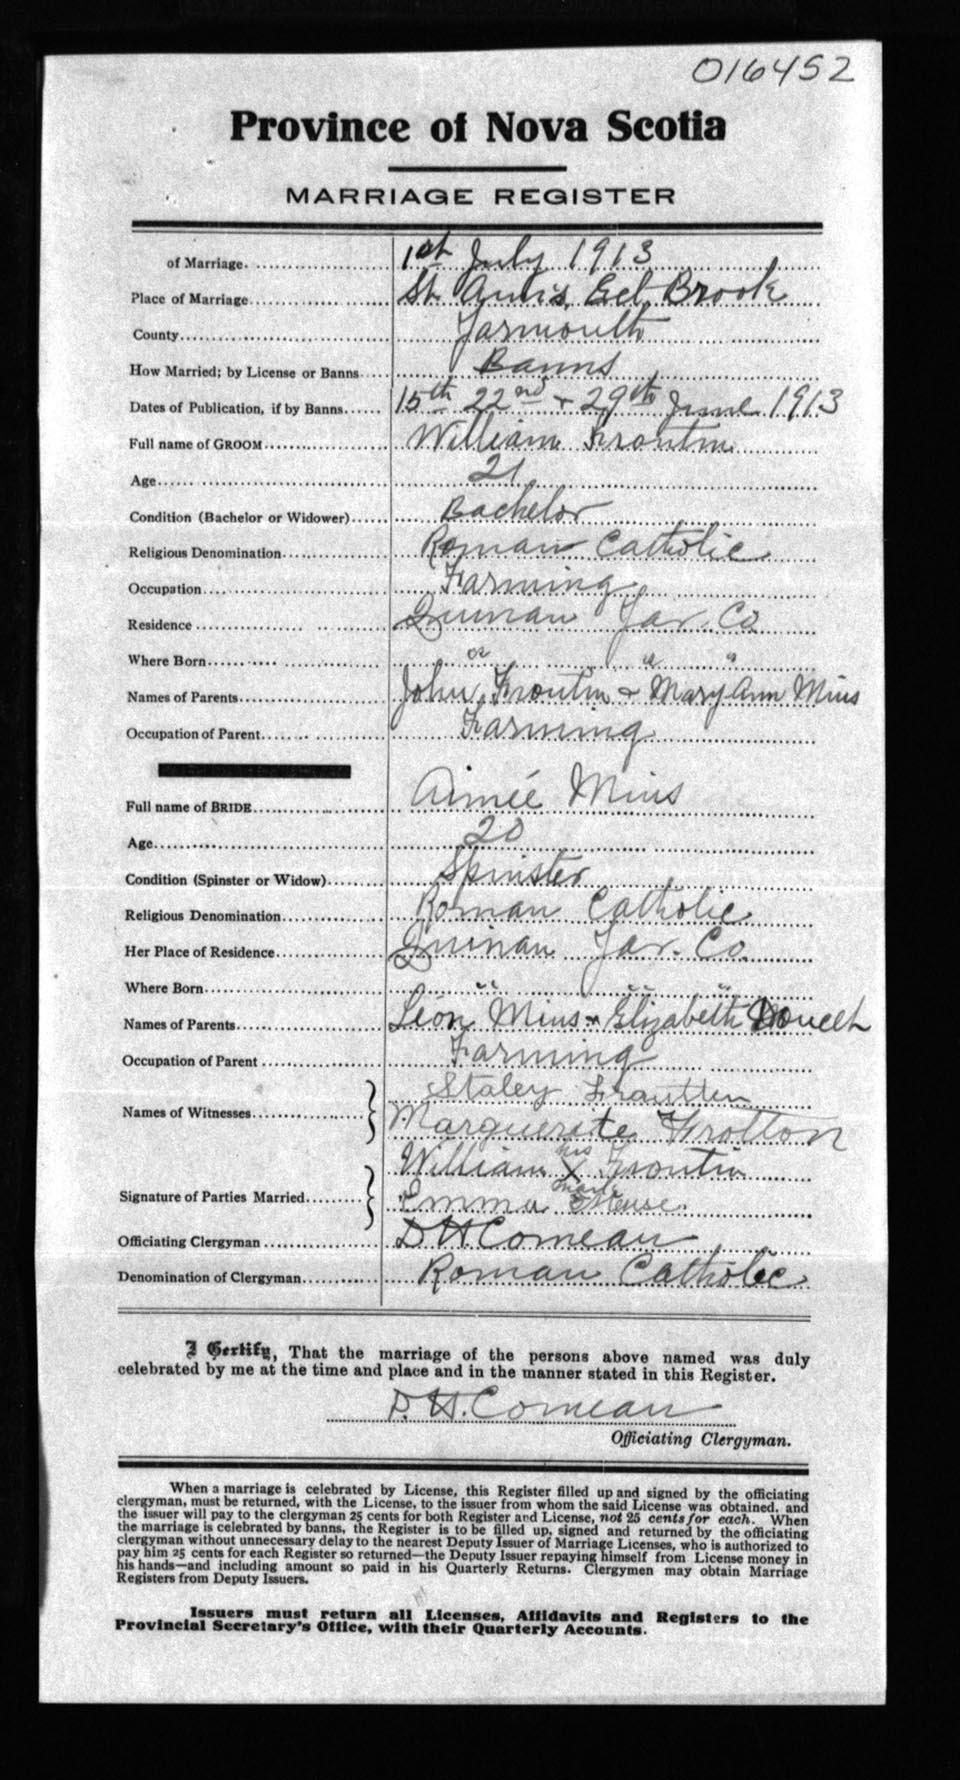 016452
Province of Nova Scotia
MARRIAGE REGISTER
of Marriage. 1st July 1913
Place of Marriage St. Ann's, Eel Brook
County Yarmouth
How Married; by License or Banns Banns
Dates of Publication, if by Banns 15th 22nd + 29th June 1913
Full name of GROOM William Froutin
Age 21
Condition (Bachelor or Widower) Bachelor
Religious Denomination Roman Catholic
Occupation Farming
Residence Quinan Yar. Co.
Where Born " " "
Names of Parents John Froutin + Mary Ann Mius
Occupation of Parent Farming
Full name of BRIDE Aimée Mius
Age 20
Condition (Spinster or Widow) Spinster
Religious Denomination Roman Catholic
Her Place of Residence Quinan Yar. Co.
Where Born " " "
Names of Parents Léon Mius + Elizabeth Doucet
Occupation of Parent Farming
Names of Witnesses Staley Frautten
Marguerite Frotton
Signature of Parties Married William his X mark Froutin
Emma Meuse
Officiating Clergyman D H. Comeau
Denomination of Clergyman Roman Catholic
I Certify, That the marriage of the persons above named was duly
celebrated by me at the time and place and in the manner stated in this Register.
D. H. Comeau
Officiating Clergyman.
When a marriage is celebrated by License, this Register filled up and signed by the officiating
clergyman, must be returned, with the License, to the issuer from whom the said License was obtained, and
the issuer will pay to the clergyman 25 cents for both Register and License, not 25 cents for each. When
the marriage is celebrated by banns, the Register is to be filled up, signed and returned by the officiating
clergyman without unnecessary delay to the nearest Deputy Issuer of Marriage Licenses, who is authorized to
pay him 25 cents for each Register so returned—the Deputy Issuer repaying himself from License money in
his hands—and including amount so paid in his Quarterly Returns. Clergymen may obtain Marriage
Registers from Deputy Issuers.
Issuers must return all Licenses, Affidavits and Registers to the
Provincial Secretary's Office, with their Quarterly Accounts.